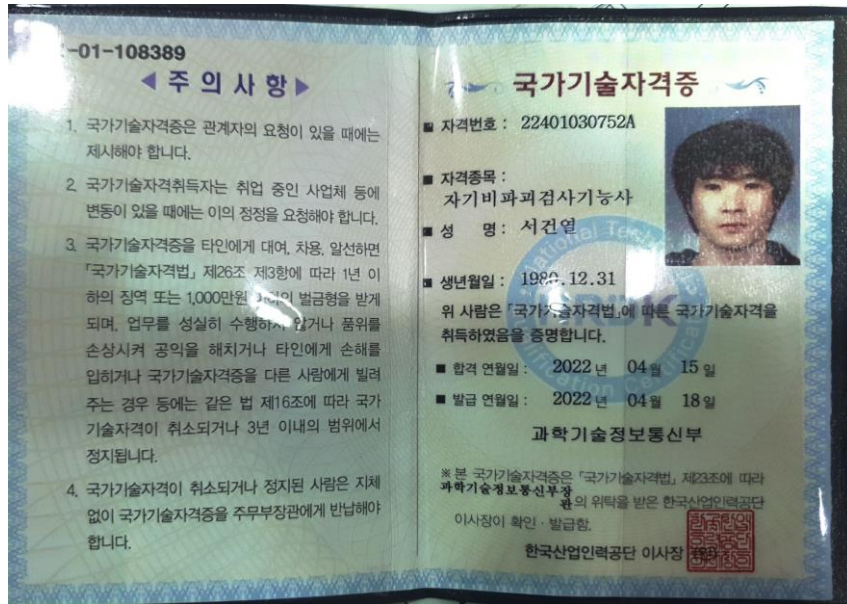 -01-108389
◀주의사항▶
1. 국가기술자격증은 관계자의 요청이 있을 때에는
제시해야 합니다.
2. 국가기술자격취득자는 취업 중인 사업체 등에
변동이 있을 때에는 이의 정정을 요청해야 합니다.
3. 국가기술자격증을 타인에게 대여, 차용, 알선하면
「국가기술자격법」 제26조 제3항에 따라 1년 이
하의 징역 또는 1,000만원 이하의 벌금형을 받게
되며, 업무를 성실히 수행하지 않거나 품위를
손상시켜 공익을 해치거나 타인에게 손해를
입히거나 국가기술자격증을 다른 사람에게 빌려
주는 경우 등에는 같은 법 제16조에 따라 국가
기술자격이 취소되거나 3년 이내의 범위에서
정지됩니다.
4. 국가기술자격이 취소되거나 정지된 사람은 지체
없이 국가기술자격증을 주무부장관에게 반납해야
합니다.
국가기술자격증
■ 자격번호 : 22401030752A
■ 자격종목 :
자기비파괴검사기능사
■ 성 명 : 서건열
■ 생년월일 : 1980.12.31
위 사람은 「국가기술자격법」에 따른 국가기술자격을
취득하였음을 증명합니다.
■ 합격 연월일 : 2022 년 04 월 15 일
■ 발급 연월일 : 2022 년 04 월 18 일
과학기술정보통신부
※ 본 국가기술자격증은 「국가기술자격법」 제23조에 따라
과학기술정보통신부장
관의 위탁을 받은 한국산업인력공단
이사장이 확인 · 발급함.
한국산업인력공단 이사장